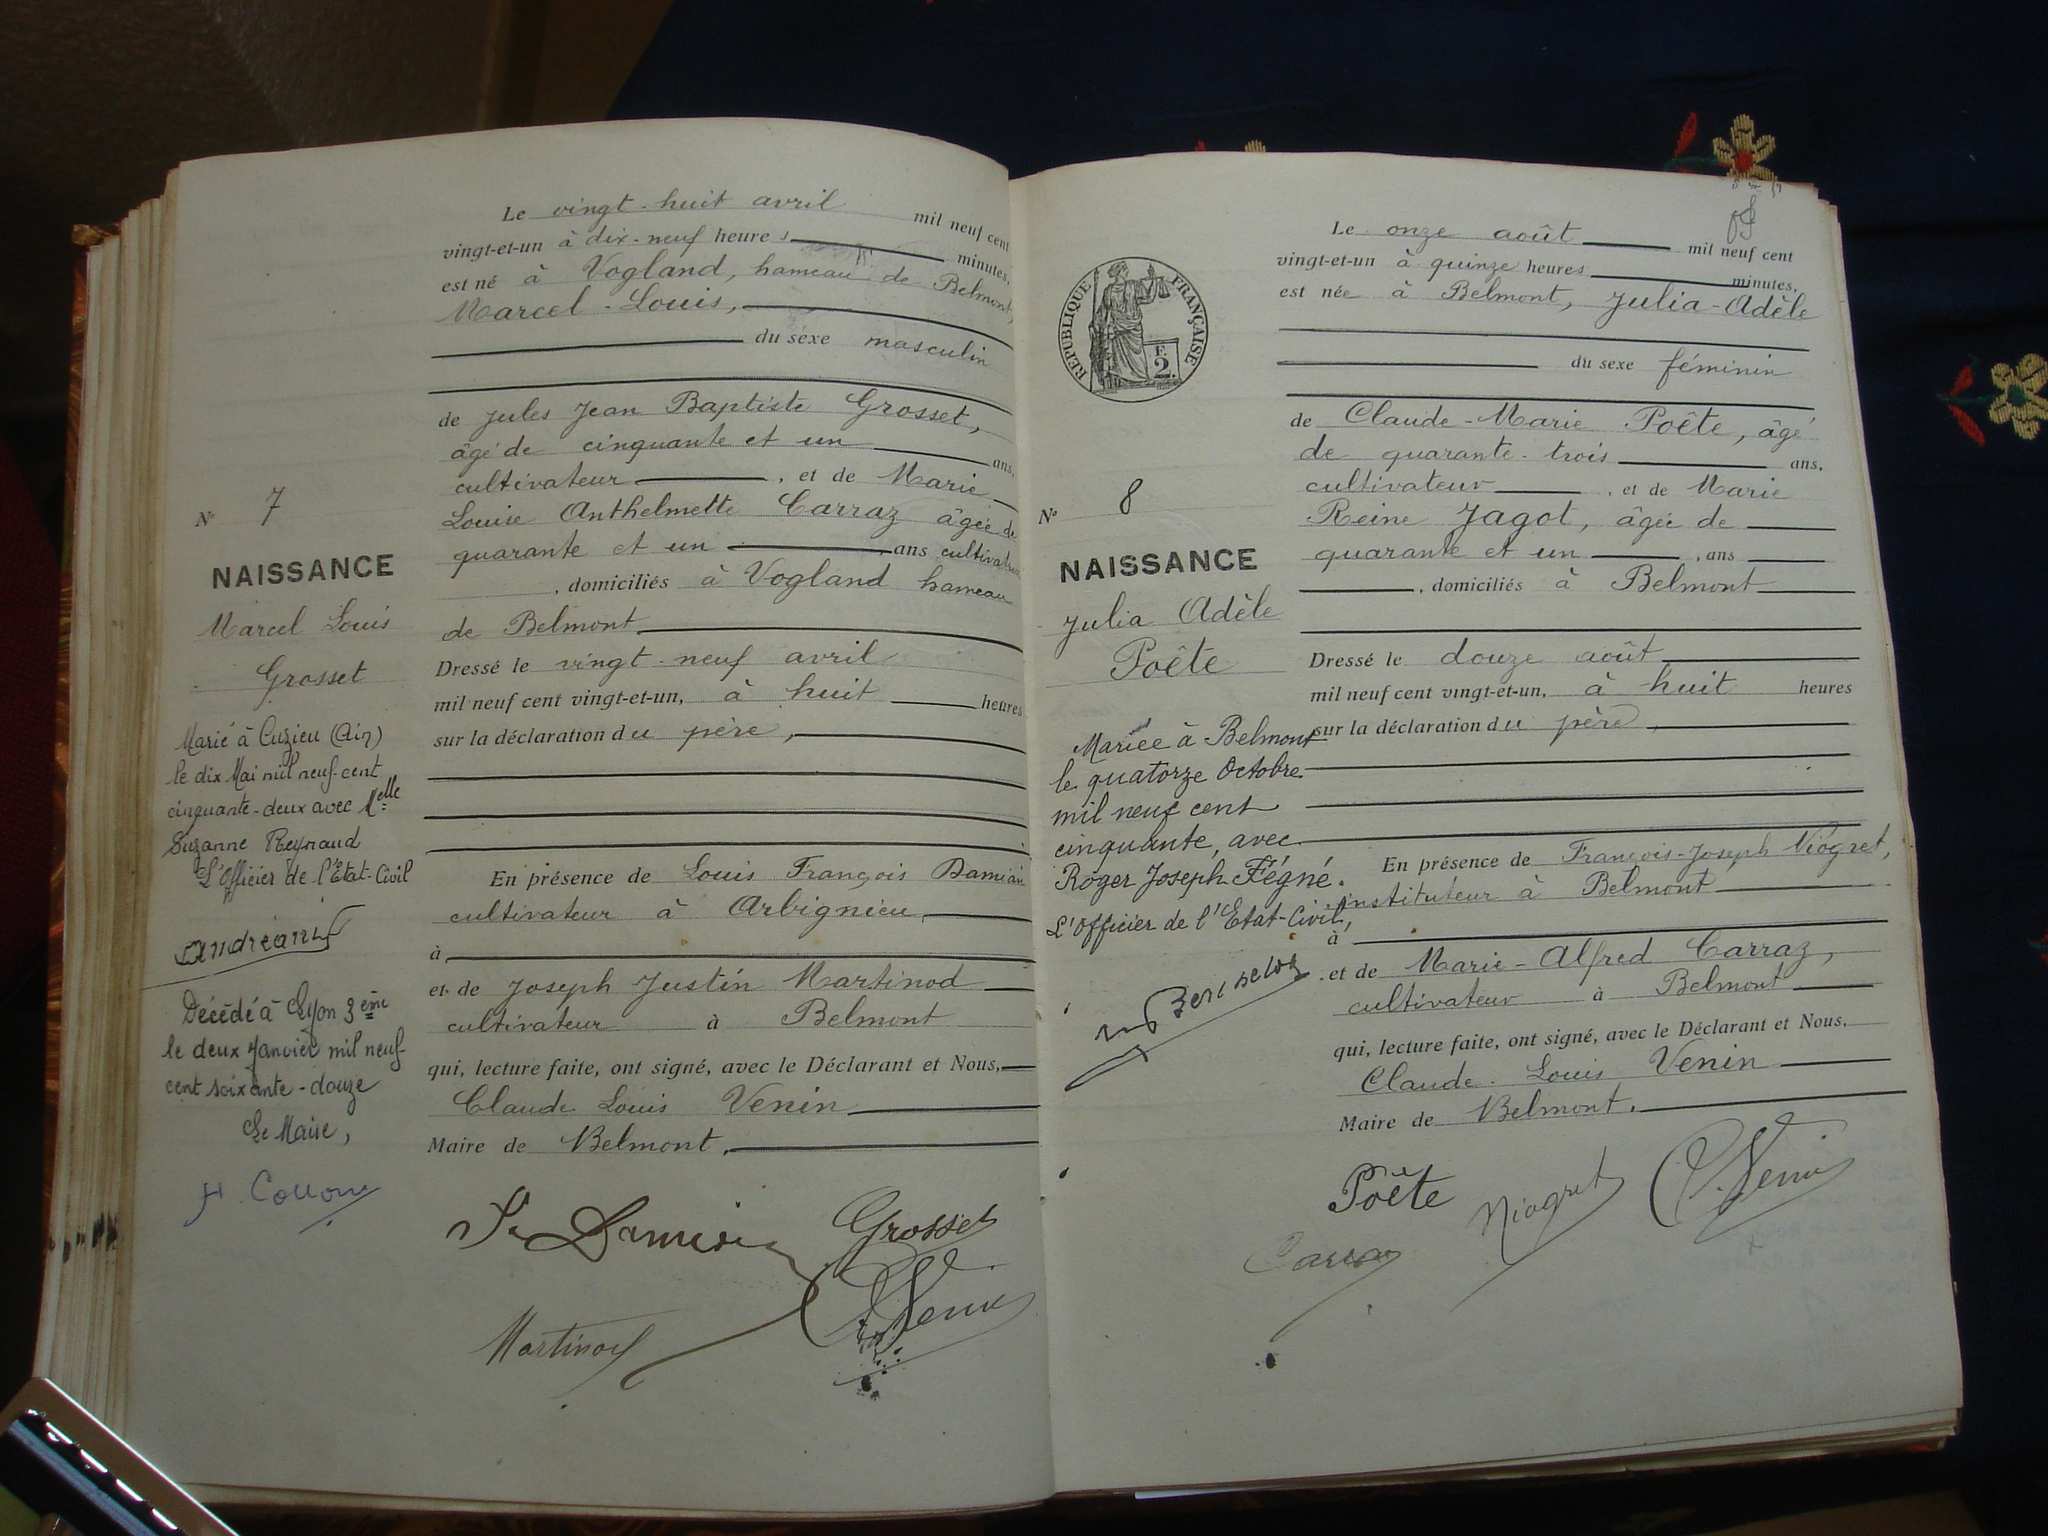 Le vingt-huit avril mil neuf cent
vingt-et-un à dix-neuf heures minutes,
est né à Vogland, hameau de Belmont,
Marcel-Louis,
du sexe masculin
de Jules Jean Baptiste Grosset,
âgé de cinquante et un ans,
cultivateur, et de Marie
Louise Anthelmette Carraz âgée de
quarante et un ans cultivatrice
, domiciliés à Vogland hameau
de Belmont
Dressé le vingt-neuf avril
mil neuf cent vingt-et-un, à huit heures
sur la déclaration du père,
En présence de Louis François Damisin
cultivateur à Arbignieu,
à
et de Joseph Justin Martinod
cultivateur à Belmont
qui, lecture faite, ont signé, avec le Déclarant et Nous,
Claude Louis Venin
Maire de Belmont,
Grosset
Martinod
C. Venin
N° 7
NAISSANCE
Marcel Louis
Grosset
Marié à Cuzieu (Ain)
le dix Mai mil neuf-cent
cinquante-deux avec Melle
Suzanne Reynaud
L'Officier de l'Etat-Civil
Andréani
Décédé à Lyon 3ème
le deux Janvier mil neuf-
cent soixante-douze
Le Maire,
RÉPUBLIQUE FRANÇAISE
F.
2.
N° 8
NAISSANCE
Julia Adèle
Poête
Mariée à Belmont
le quatorze Octobre
mil neuf cent
cinquante, avec
Roger Joseph Fégné.
L'Officier de l'Etat-Civil,
Le onze août mil neuf cent
vingt-et-un à quinze heures minutes,
est née à Belmont, Julia-Adèle
du sexe féminin
de Claude-Marie Poête, âgé
de quarante-trois ans,
cultivateur, et de Marie
Reine Jagot, âgée de
quarante et un, ans
, domiciliés à Belmont
Dressé le douze août
mil neuf cent vingt-et-un, à huit heures
sur la déclaration du père,
En présence de François-Joseph Niogret,
instituteur à Belmont
à
et de Marie-Alfred Carraz,
cultivateur à Belmont
qui, lecture faite, ont signé, avec le Déclarant et Nous,
Claude-Louis Venin
Maire de Belmont,
Poête Niogret C. Venin
Carraz